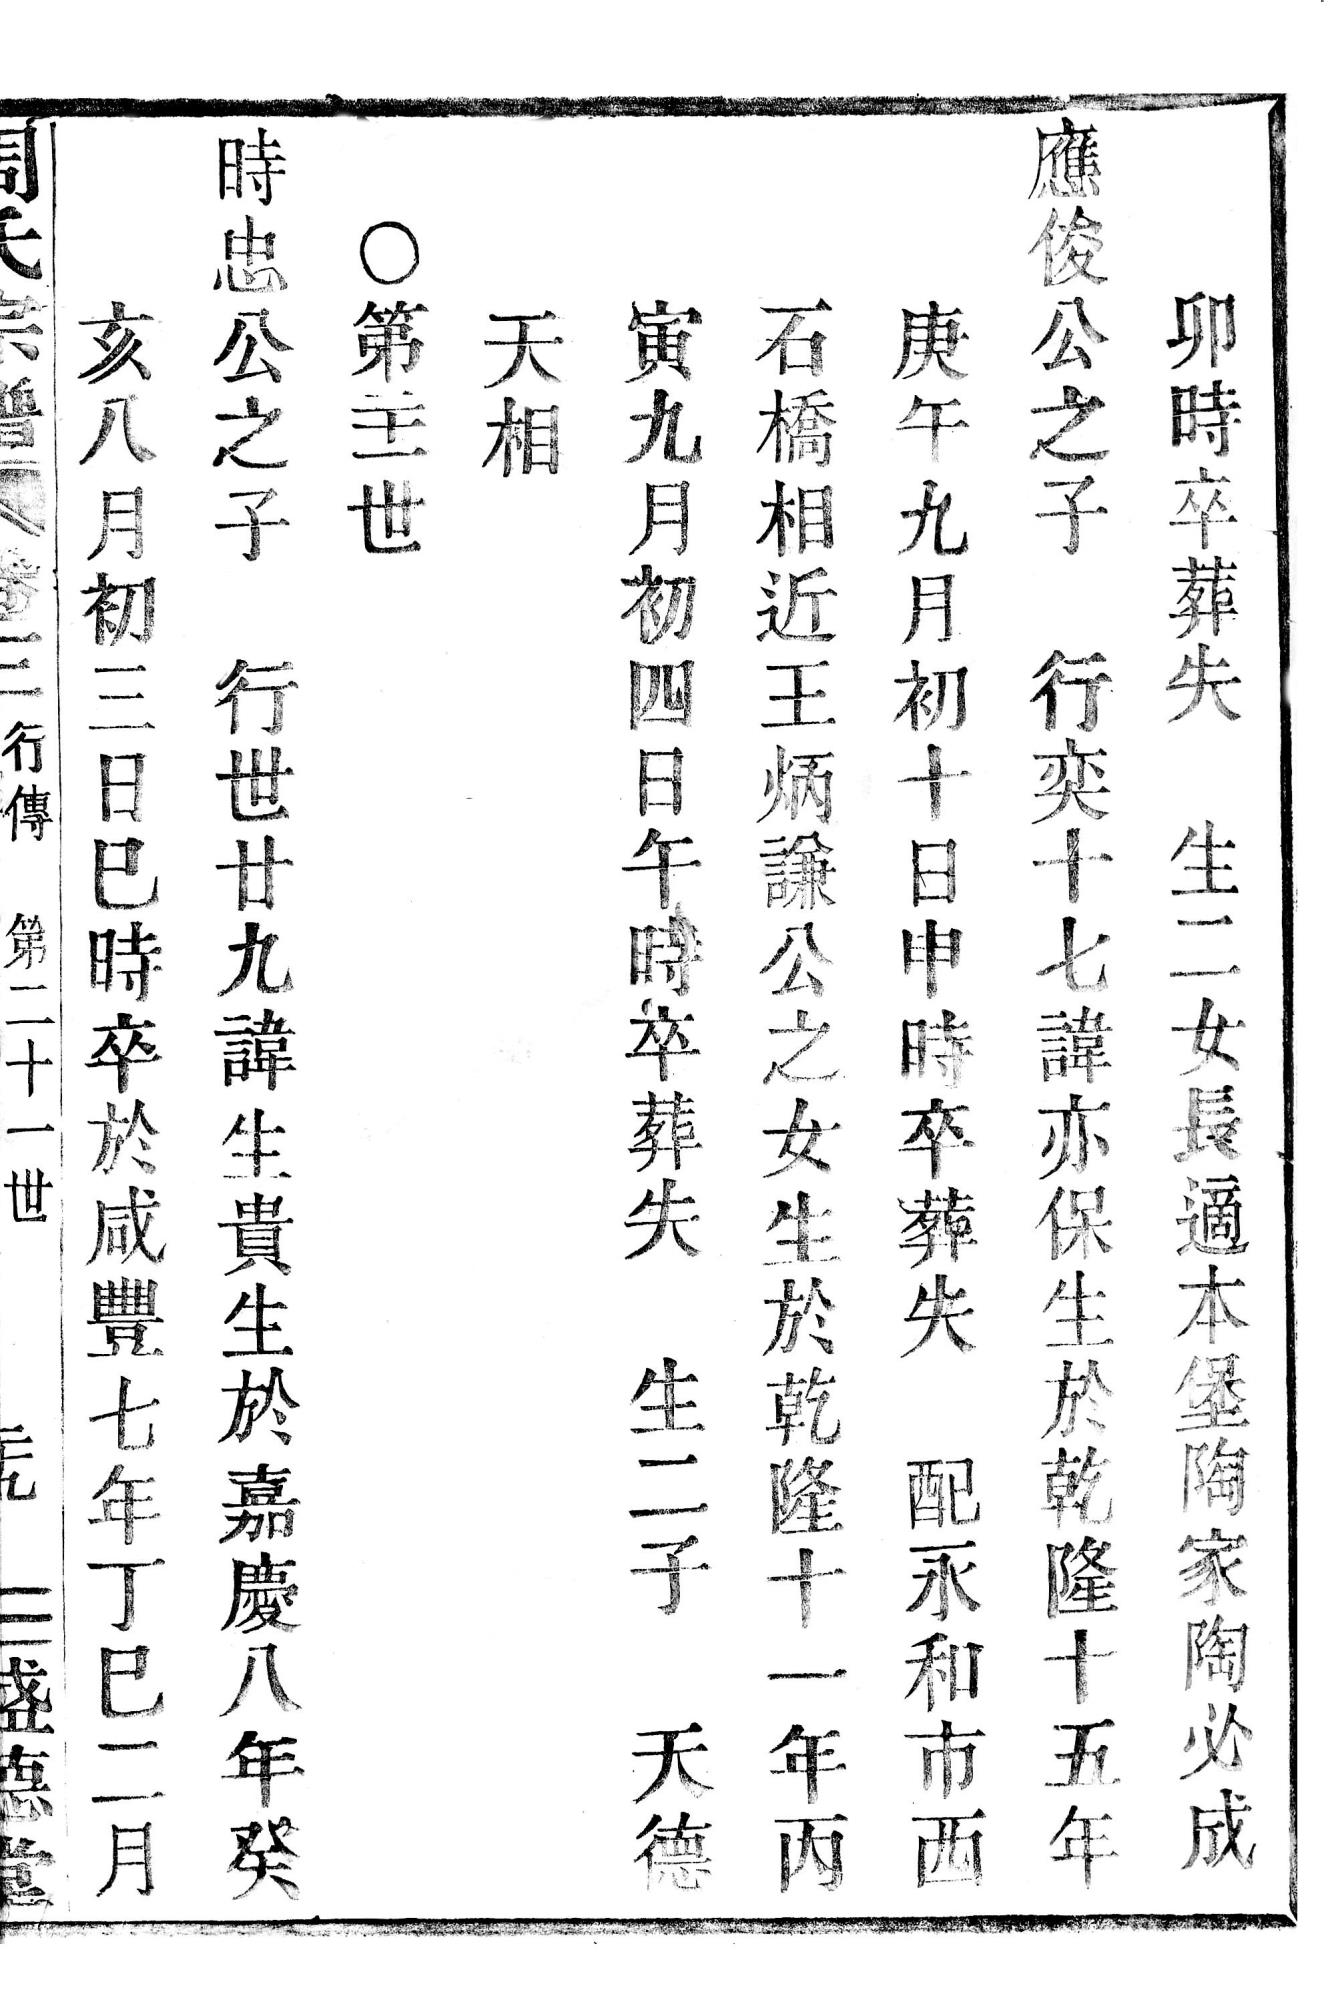 卯時卒葬失　生二女長適本堡陶家陶必成
應俊公之子　行奕十七諱亦保生於乾隆十五年
庚午九月初十日申時卒葬失　配永和市西
石橋相近王炳謙公之女生於乾隆十一年丙
寅九月初四日午時卒葬失　生二子　天德
天相
○第二十一世
時忠公之子　行世廿九諱生貴生於嘉慶八年癸
亥八月初三日巳時卒於咸豐七年丁巳二月
周氏宗譜　卷三　行傳　第二十一世　盛德堂